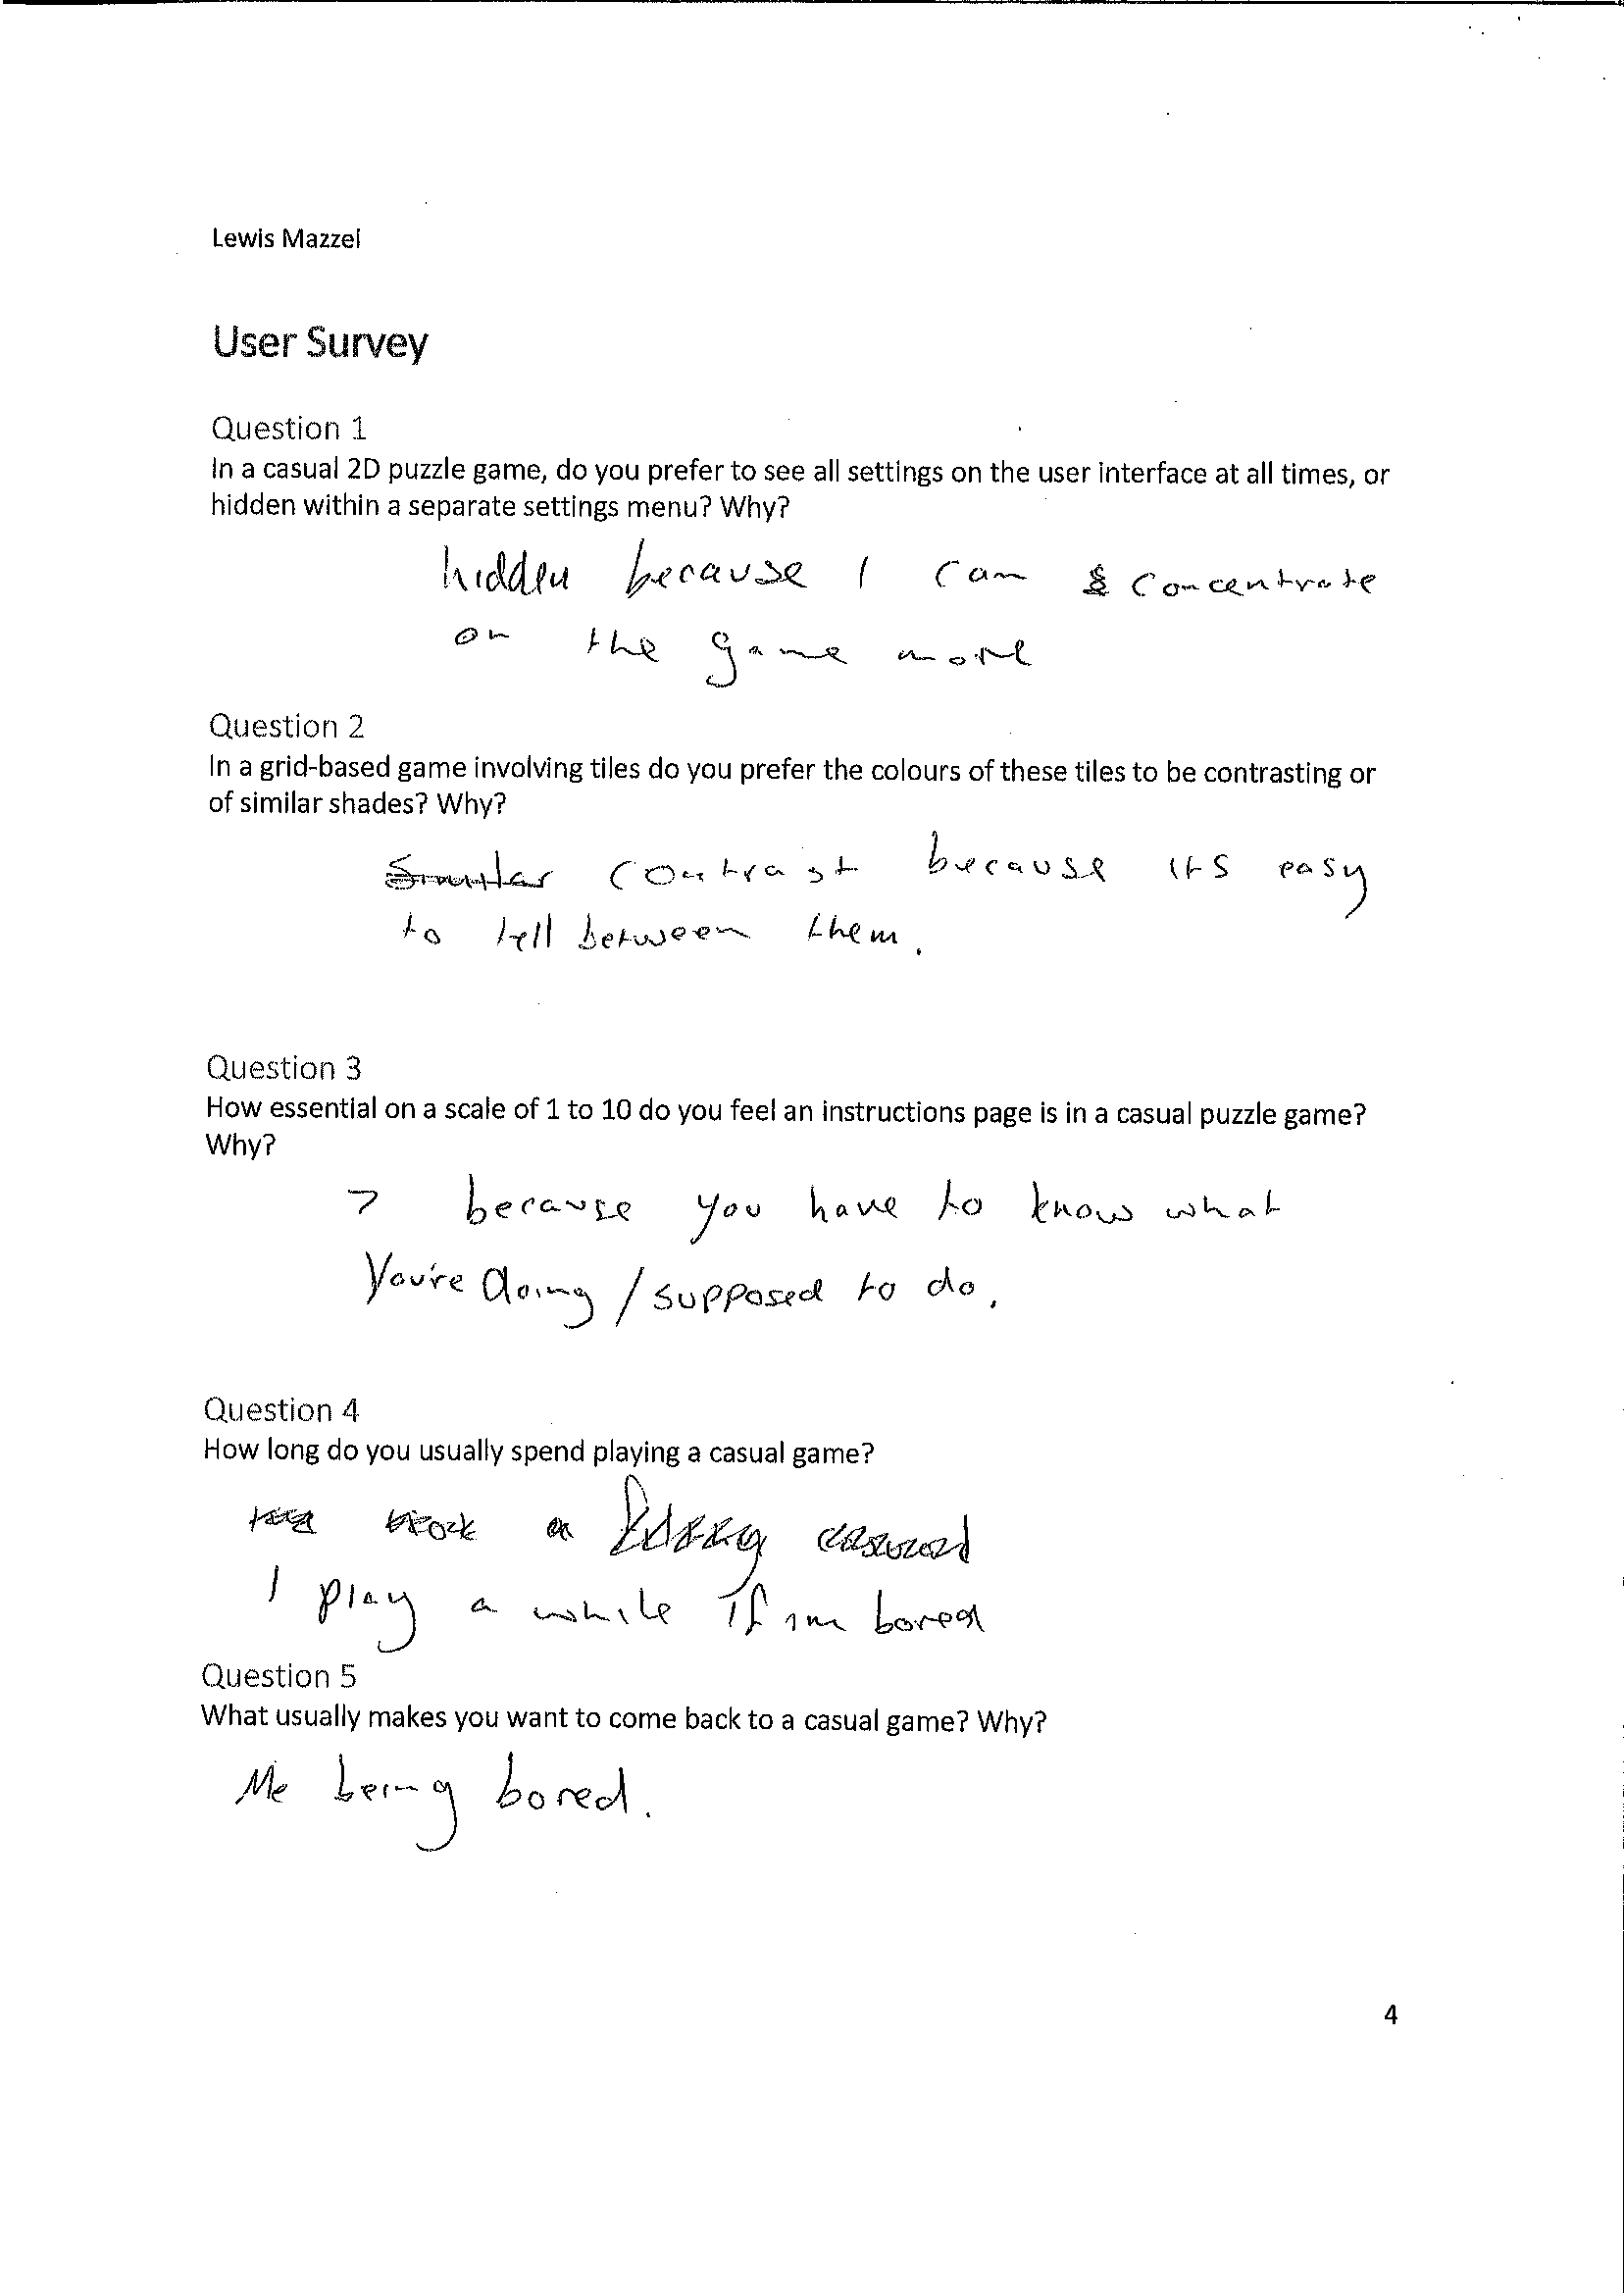 Lewis Mazzei
User Survey
Question 1
In a casual 2D puzzle game, do you prefer to see all settings on the user interface at all times, or
hidden within a separate settings menu? Why?
hidden because I can concentrate
on the game more
Question 2
In a grid-based game involving tiles do you prefer the colours of these tiles to be contrasting or
of similar shades? Why?
Similar contrast because its easy
to tell between them.
Question 3
How essential on a scale of 1 to 10 do you feel an instructions page is in a casual puzzle game?
Why?
7 because you have to know what
You're doing / supposed to do.
Question 4
How long do you usually spend playing a casual game?
a
I play a while If im bored
Question 5
What usually makes you want to come back to a casual game? Why?
Me being bored.
4